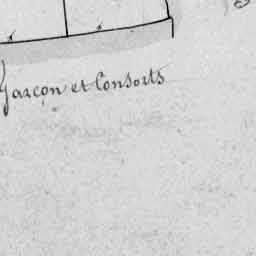 Garçon et Consorts